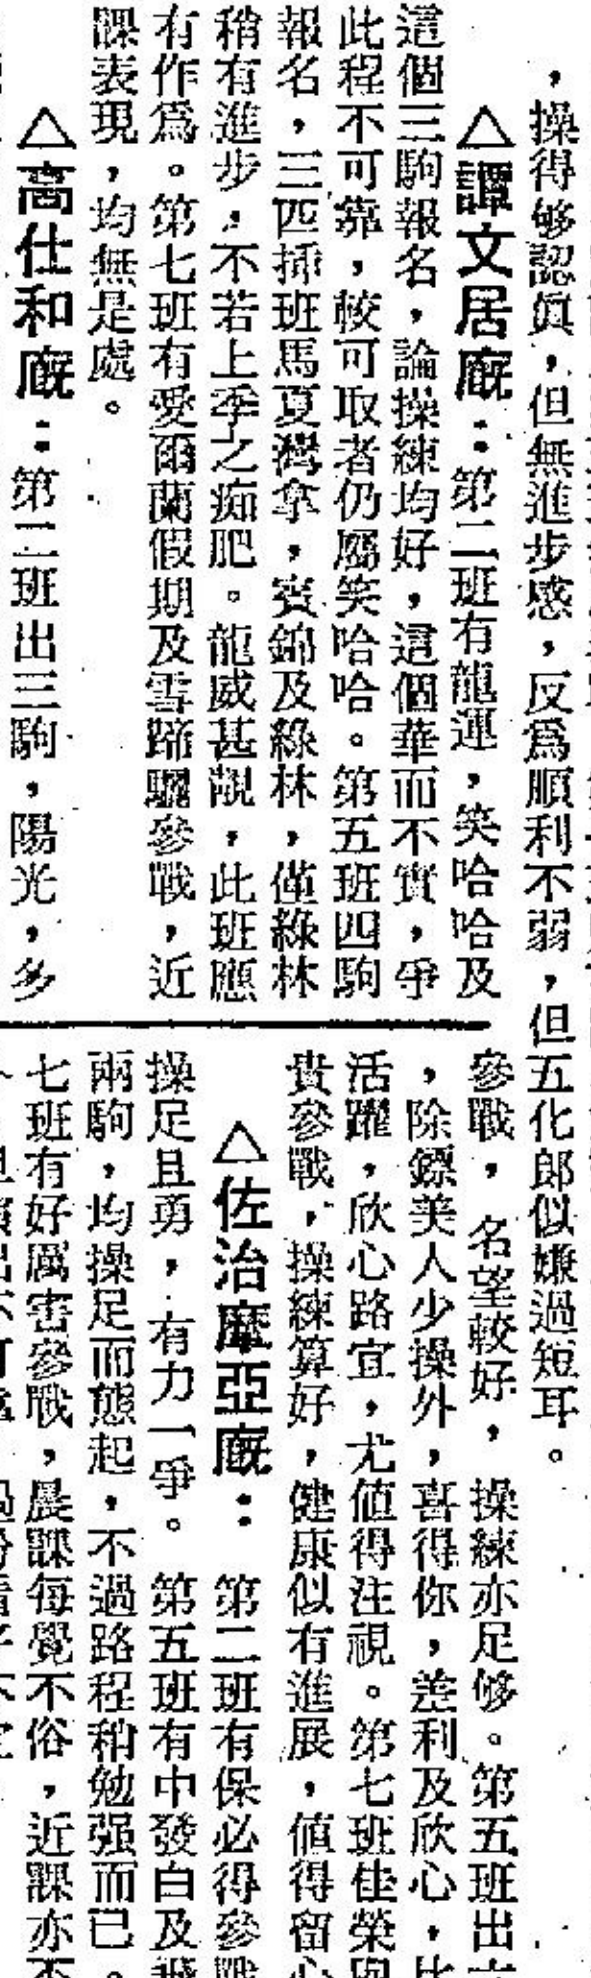 ，操得够認眞，但無進步感，反爲順利不弱，但五化郎似嫌過短耳。
△譚文居廐：第二班有龍運，笑哈哈及
這個三駒報名，論操練均好，這個華而不實，爭
此程不可靠，較可取者仍屬笑哈哈。第五班四駒
報名，三匹揷班馬夏灣拿，賓錦及綠林，僅綠林
稍有進步，不若上季之痴肥。龍威甚靚，此班應
有作爲。第七班有愛爾蘭假期及雪蹄驪參戰，近
課表現，均無是處。
△高仕和廐：第二班出三駒，陽光，多
參戰，名望較好，操練亦足够。第五班出
，除鏢美人少操外，喜得你，差利及欣心，比
活躍，欣心路宜，尤値得注視。第七班佳榮
貴參戰，操練算好，健康似有進展，値得留心
△佐治摩亞廐：第二班有保必得參戰
操足且勇，有力一爭。第五班有中發白及飛
兩駒，均操足而態起，不過路程稍勉强而已。
七班有好厲害參戰，晨課每覺不俗，近課亦不